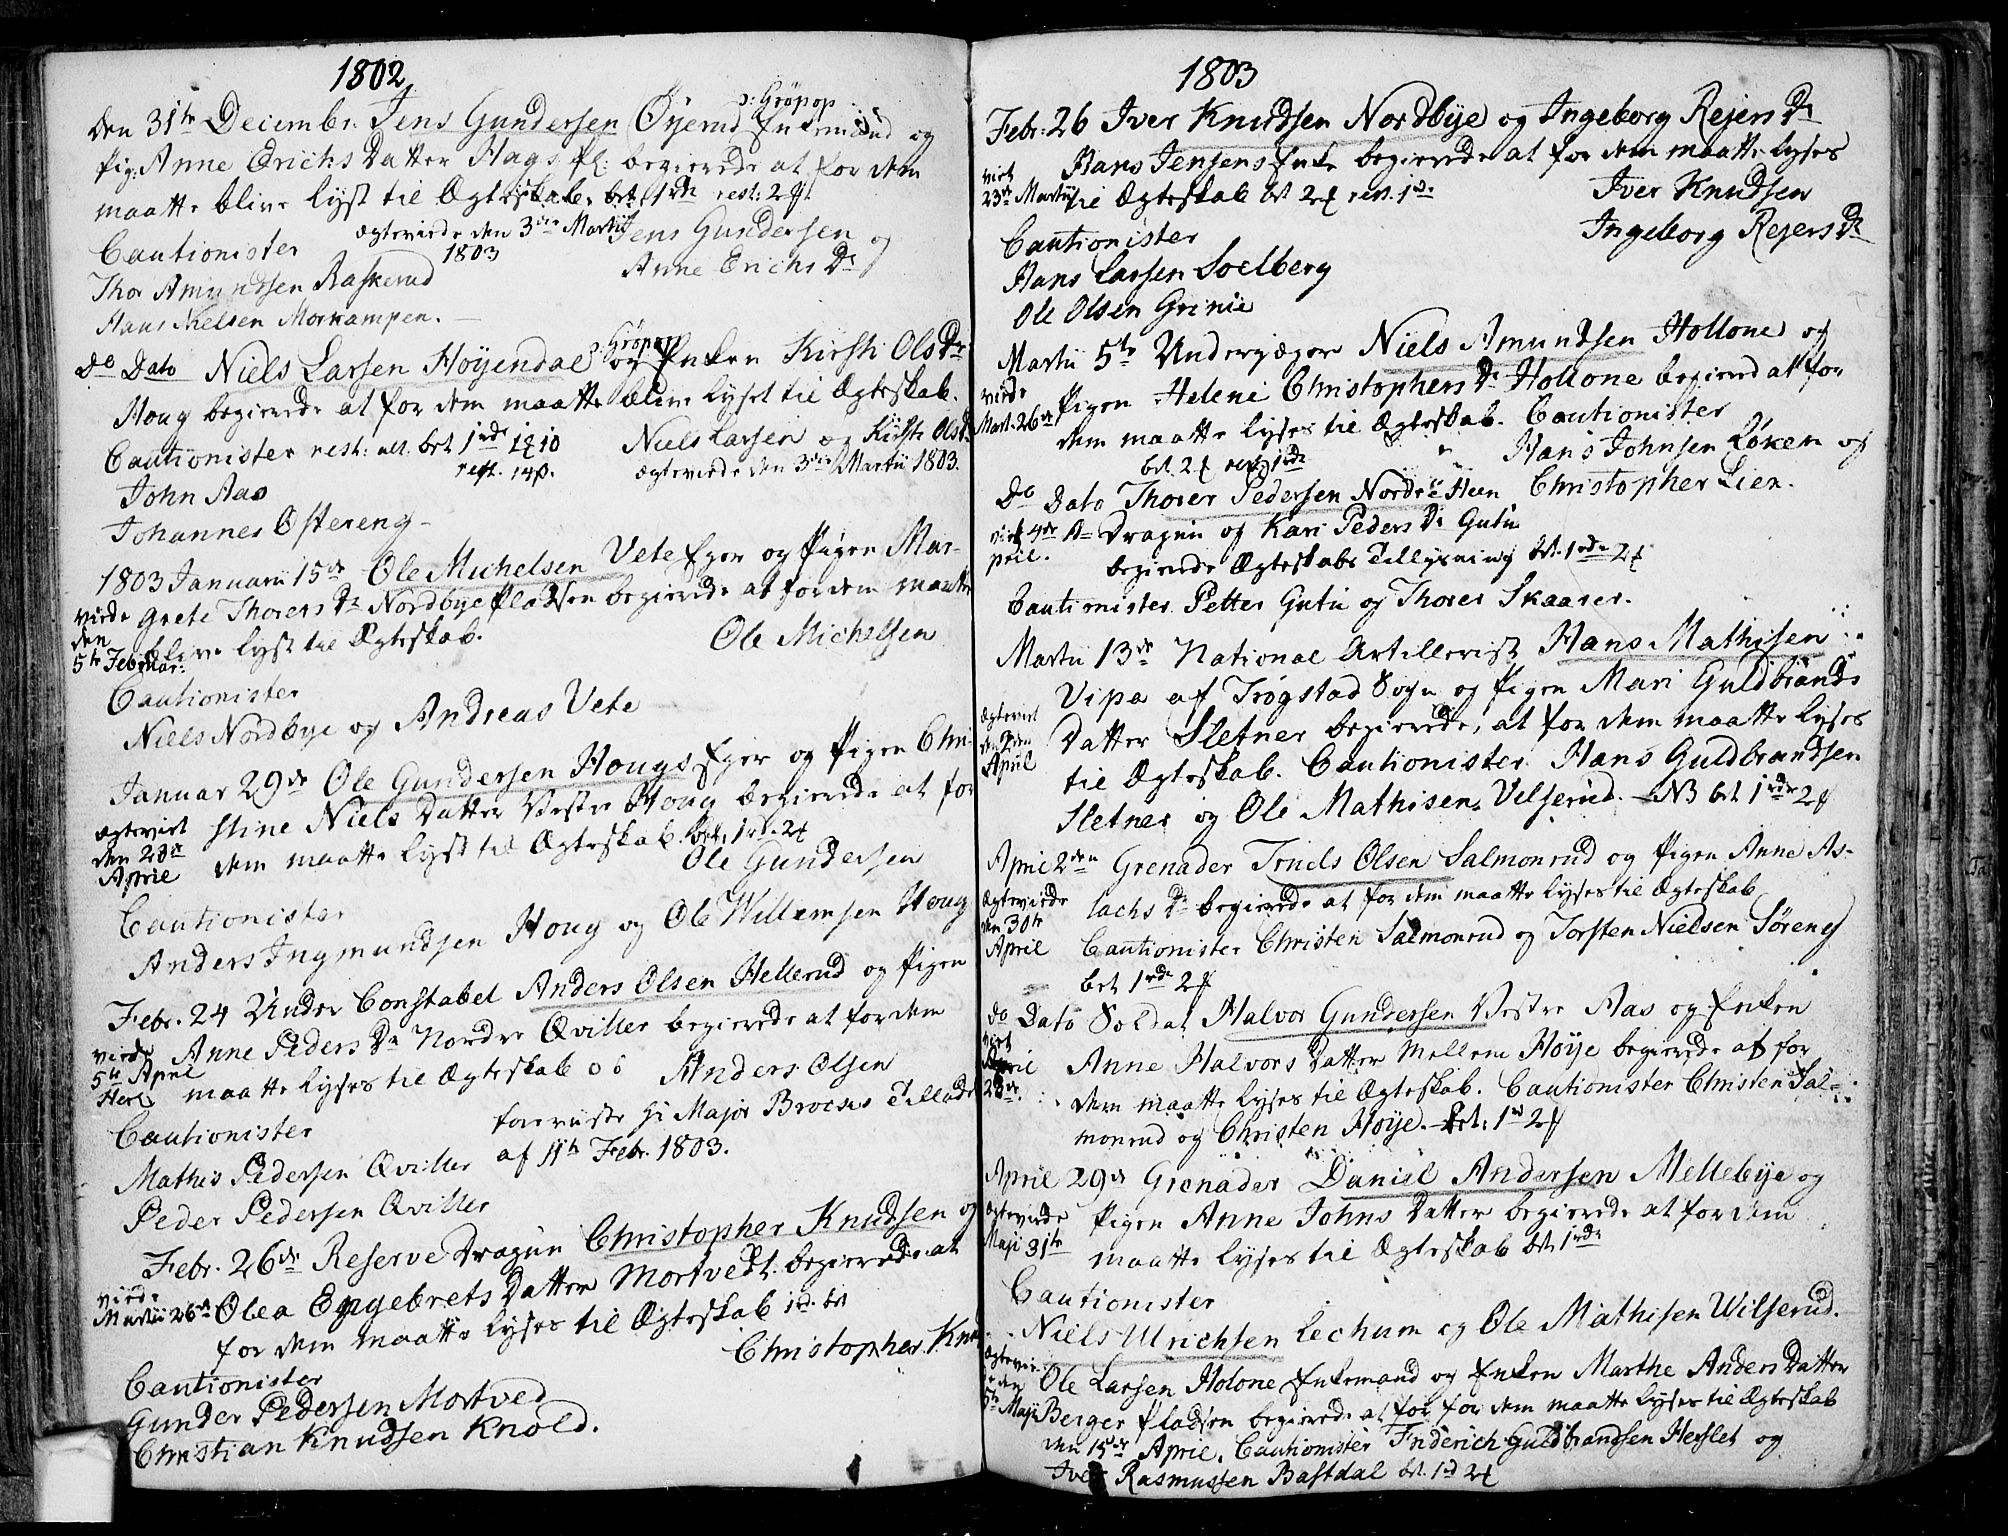 1802
den 31te Decembr. Jens Gundersen Öÿerud Enkemand og
Pig: Anne Erichs Datter Hags Pl: begierede at for dem
maatte blive lyst til Ægteskab. bet. 1rd rest: 2
ægteviede den 3die Martii
1803
Jens Gundersen og
Anne Erichs Dr
Cautionister
Thor Amundsen Raskerud
Hans Nielsen Morkampen.
Do Dato Niels Larsen Höyendal og Enken Kirsti Ols Dr
Houg begierede at for dem maatte blive lyset til Ægteskab.
Cautionister rest: alt. bet 1rdr
Niels Larsen og Kirsti Olsd.
ægteviede den 3die Martii 1803.
John Aas
Johannes Ostereng
1803 Januarii 15de Ole Michelsen Vete Eger og Pigen Mar-
virde
den
5te Februar:
grete Thorers Dr Nordbye Pladsen begierede at for dem maatte
blive lyst til Ægteskab.
Ole Michelsen
Cautionister
Niels Nordbye og Andreas Vete
Januar 29de Ole Gundersen Hougs Eger og Pigen Chri-
ægteviet
den 28de
April
stine Niels Datter Vestre Houg begierede at for
dem maatte lyst til Ægteskab. bet. 1rd. 2
Ole Gundersen
Cautionister
Anders Ingmundsen Houg og Ole Willumsen Houg
Febr. 24 Under Constabel Anders Olsen Hellerud og Pigen
virde
5te April
Anne Peders Dr Nordre Qviller begierede at for dem
maatte lyses til Ægteskab
Anders Olsen
Cautionister
foreviiste Hr Major Brocses Tillade
af 11te Febr. 1803.
Mathis Pedersen Qviller
Peder Pedersen Qviller
Febr. 26de Reserve Dragun Christopher Knudsen og
virde
Martii 26de
Olea Engebrets Datter Mortvedt begierede at
for dem maatte lyses til Ægteskab 1rd. bet
Christopher Knud
Cautionister
Gunder Pedersen Mortved
Christian Knudsen Knold.
1803
Febr: 26 Iver Knudsen Nordbye og Ingeborg Rejers Dr
Hans Jensens Enke begierede at for dem maatte lyses
viet
23de Martii
til Ægteskab bet 2 rest. 1rd
Iver Knudsen
Ingeborg Rejers Dr
Cautionister
Hans Larsen Soelberg
Ole Olsen Grinie
Martii 5te Underjæger Niels Amundsen Hollone og
virde
Mart. 26de
Pigen Helene Christophers Dr Hollone begiered at for
dem maatte lyses til Ægteskab. Cautionister
bet. 2 rest 1rdr
Hans Johnsen Löken og
Christopher Lien.
Do Dato Thorer Pedersen Nordre Heen
viet 9de A-
pril.
Dragun og Kari Peders Dr Gutu
begierede Ægteskabs Tillysning bet. 1rdr 2
Cautionister Petter Gutu og Thorer Skaarer.
Martii 13de National Artillerist Hans Mathisen
Vipa af Trøgstad Sogn og Pigen Mari Guldbrands
ægteviet
den 2den
April
Datter Sletner begierede, at for dem maatte lyses
til Ægteskab. Cautionister Hans Guldbrandsen
Sletner og Ole Mathisen Velserud. NB bet 1rdr 2
April 2den Grenader Truels Olsen Salmonrud og Pigen Anne As-
ægteviede
den 30te
April
lachs Dr begierede at for dem maatte lyses til Ægteskab
Cautionister Christen Salmonrud og Torsten Nielsen Söreng
bet 1rdr 2
do Dato Soldat Halvor Gundersen Vestre Aas og Enken
viet
April
28de
Anne Halvors Datter Mellem Höye begierede at for
dem maatte lyses til Ægteskab. Cautionister Christen Sal-
monrud og Christen Höye. bet: 1rd 2
April 29de Grenader Daniel Andersen Mellebye og
ægteviede
Maji 31te
Pigen Anne Johns Datter begierede at for dem
maatte lyses til Ægteskab bet. 1rdr
Cautionister
Niels Ulrichsen Lechum og Ole Mathisen Wilserud.
Ole Larsen Holone Enkemand og Enken Marthe Anders Datter
5te Maji
Berger Pladsen begierede at for for dem maatte lyses til Ægteskab
den 15de April. Cautionister Friderich Guldbrandsen Herslet og
Iver Rasmussen Bastdal bet. 1rd 2